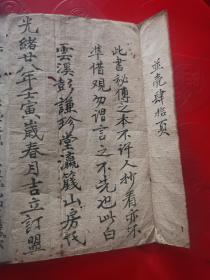 並壳肆拾頁
此書秘傳之本不許人抄看亦不
準借觀勿謂言之不先也此白
雲溪彭謙珍堂瀛籛山房代
光緒廿八年壬寅歲春月吉立訂盟